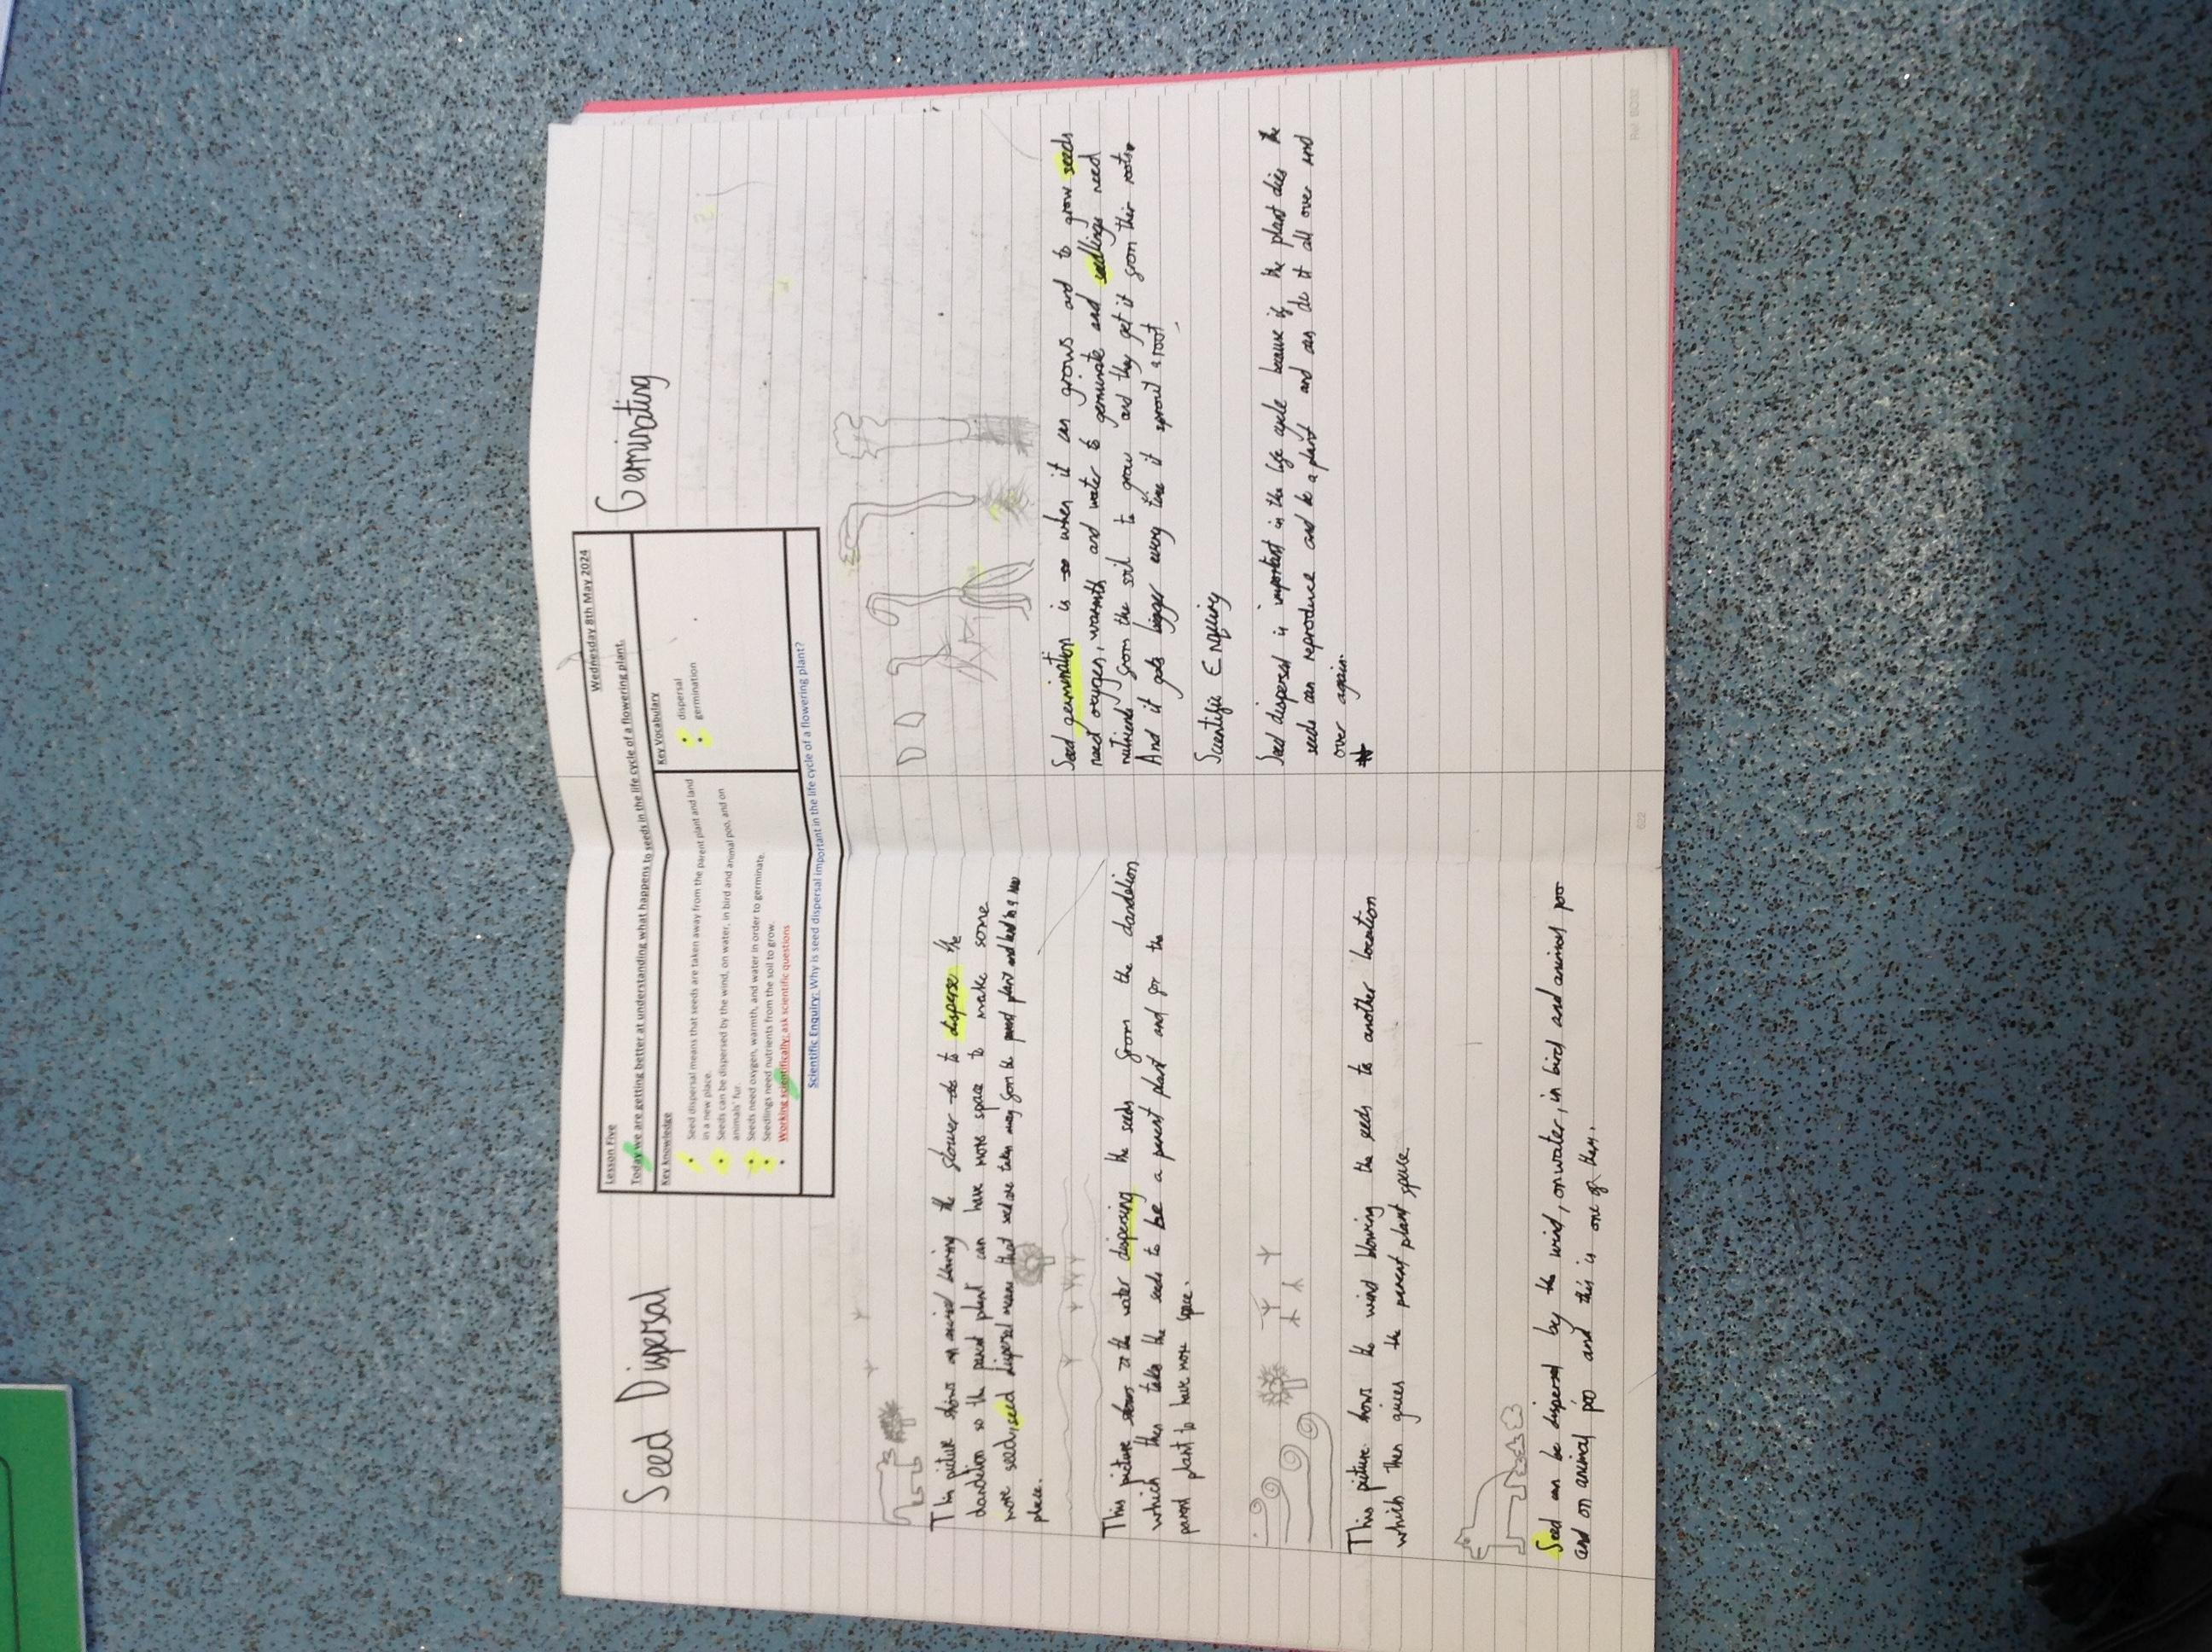 Lesson Five
Wednesday 8th May 2024
Today we are getting better at understanding what happens to seeds in the life cycle of a flowering plant.
Key Knowledge
Key Vocabulary
• Seed dispersal means that seeds are taken away from the parent plant and land
in a new place.
• Seeds can be dispersed by the wind, on water, in bird and animal poo, and on
animals' fur.
• Seeds need oxygen, warmth, and water in order to germinate.
• Seedlings need nutrients from the soil to grow.
• Working scientifically: ask scientific questions
• dispersal
• germination
Scientific Enquiry: Why is seed dispersal important in the life cycle of a flowering plant?
Seed Dispersal
This picture shows an animal the flower to disperse the
dandelion so the parent plant can have more space to make some
more seed, seed dispersal means that seed are taken away from the parent plant and land in a new
place.
This picture the water dispersing the seeds from the dandelion
which then take the seeds to be a parent plant and for the
parent plant to have more space.
This picture hows the wind blowing the seeds to another location
which then gives the parent plant space.
Seed can be dispersed by the wind, on water, in bird and animal poo
and on animal poo and this is one of them.
Germinating
Seed germination is when it can grows and to grow seeds
need oxygen, warmth and water to germinate and seedlings need
nutrients from the soil to grow and they get it from their roots
And it gets bigger every time it sprout a root
Scientific Enquiry
Seed dispersal is important in the life cycle because if the plant dies the
seeds can reproduce and be a plant and can do it all over and
over again.
622
Ref: BO202